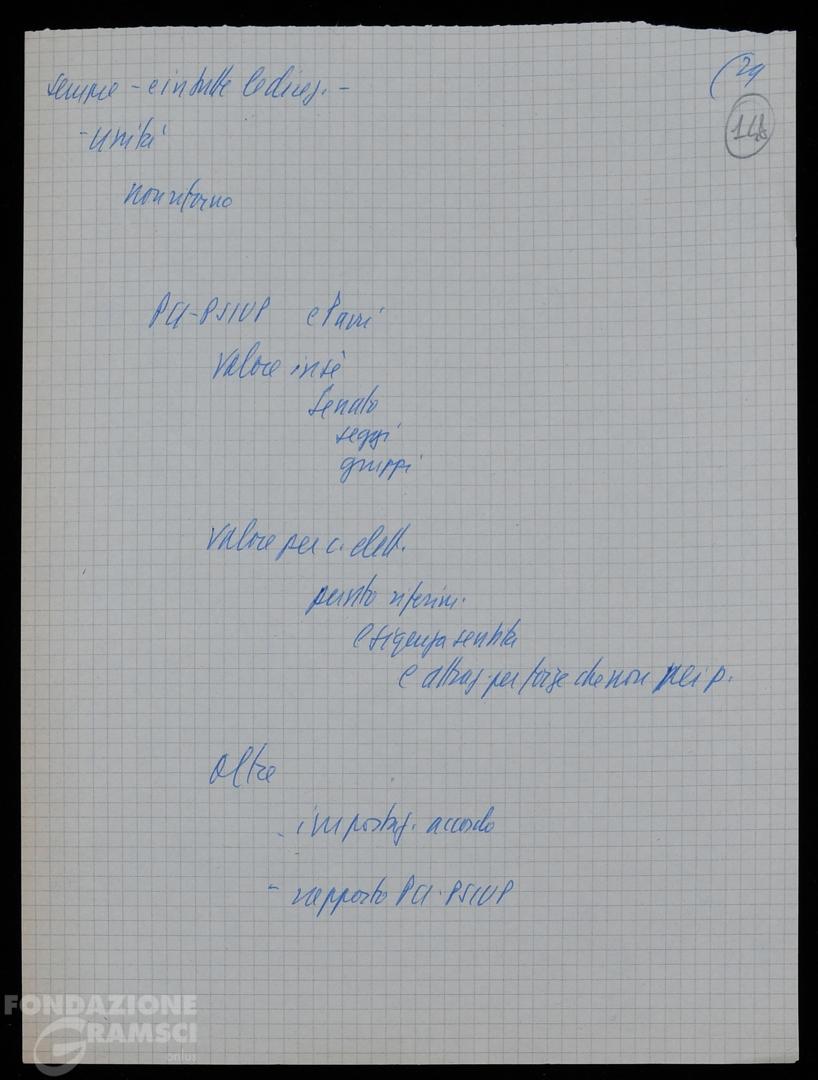 (29
148
sempre - e in tutte le direz. -
- unità
non ritorno
PCI-PSIUP e Parri
Valore in sè
Senato
seggi
gruppi
Valore per c. elett.
punto riferim.
esigenza sentita
e attraz. per forze che non nei p.
Oltre
- impostaz. accordo
- rapporto PCI-PSIUP
FONDAZIONE
GRAMSCI
onlus